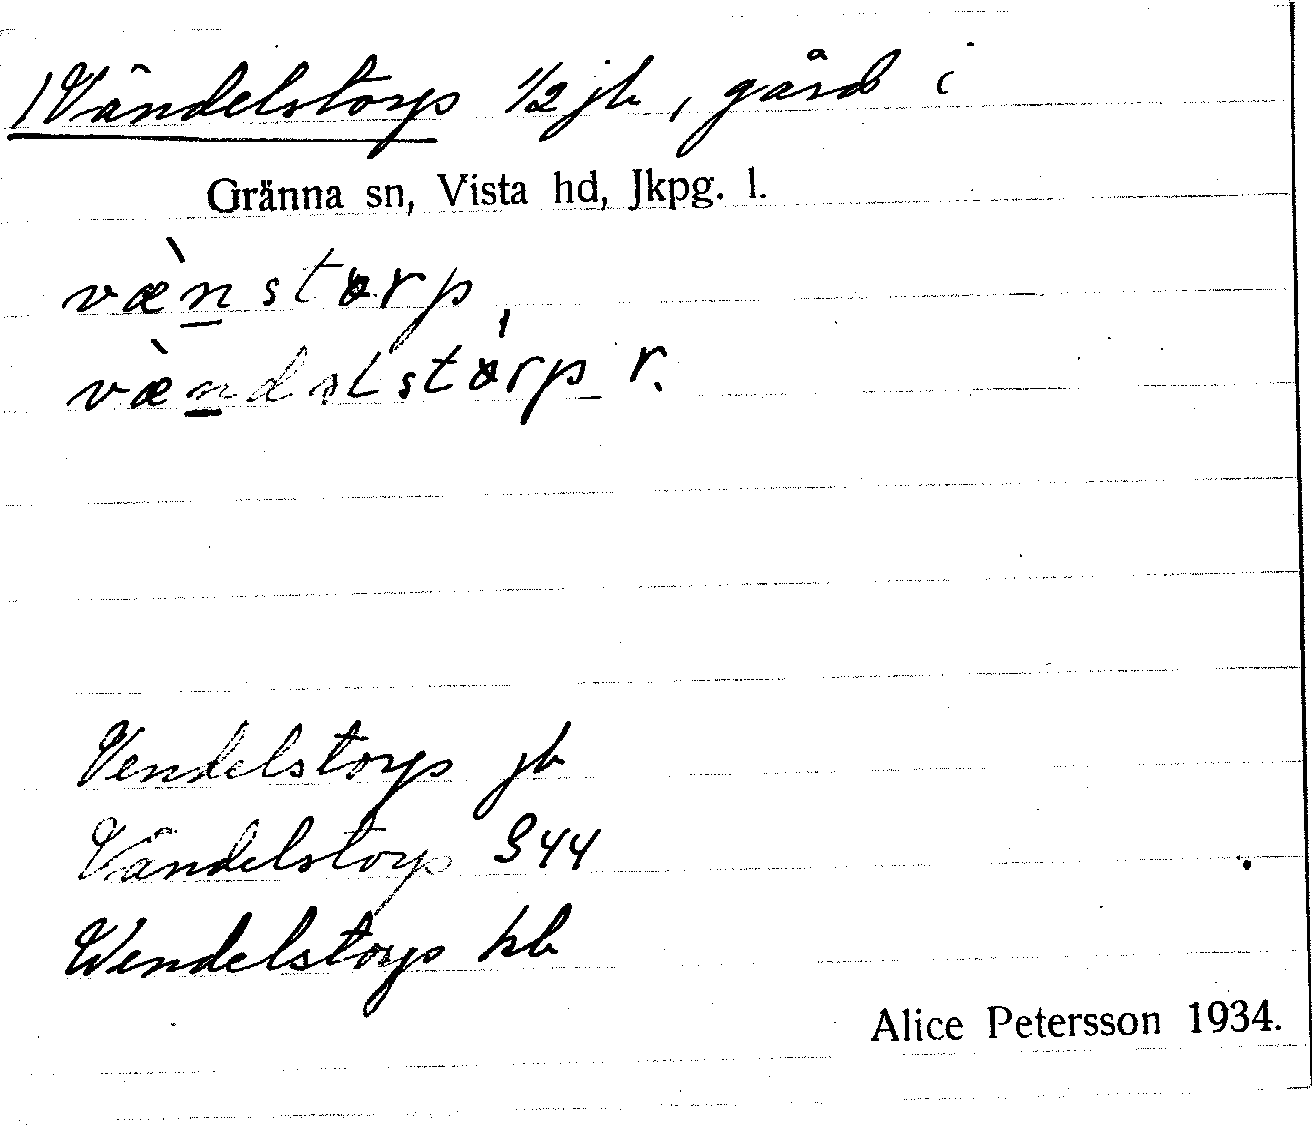 Vändelstorp 1/2 jb, gård i
Gränna sn, Vista hd, Jkpg. l.
væ̀nstɷrp
væ̀ndəlstɷ́rp r.
Vendelstorp jb
Vändelstorp S44
Wendelstorp kb
Alice Petersson 1934.